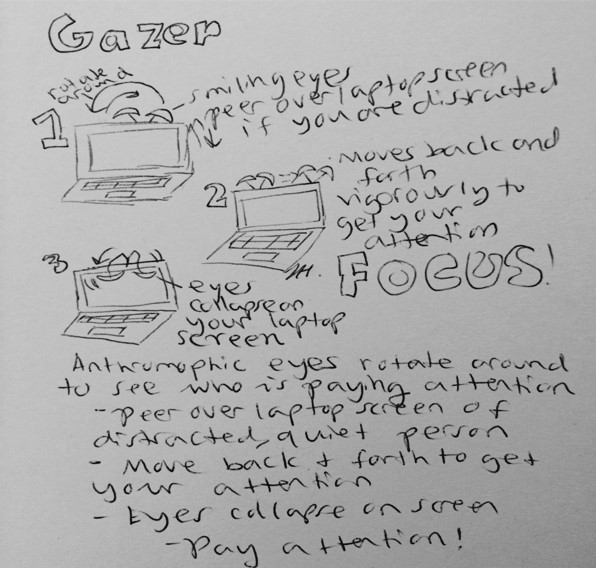 Gazer
rotate
around
1
smiling eyes
peer over laptop screen
if you are distracted
2
moves back and
forth
vigorously to
get your
attention
FOCUS!
3
eyes
collapse on
your laptop
screen
Anthromophic eyes rotate around
to see who is paying attention
- Peer over laptop screen of
distracted, quiet person
- Move back + forth to get
your attention
- Eyes collapse on screen
- Pay attention!